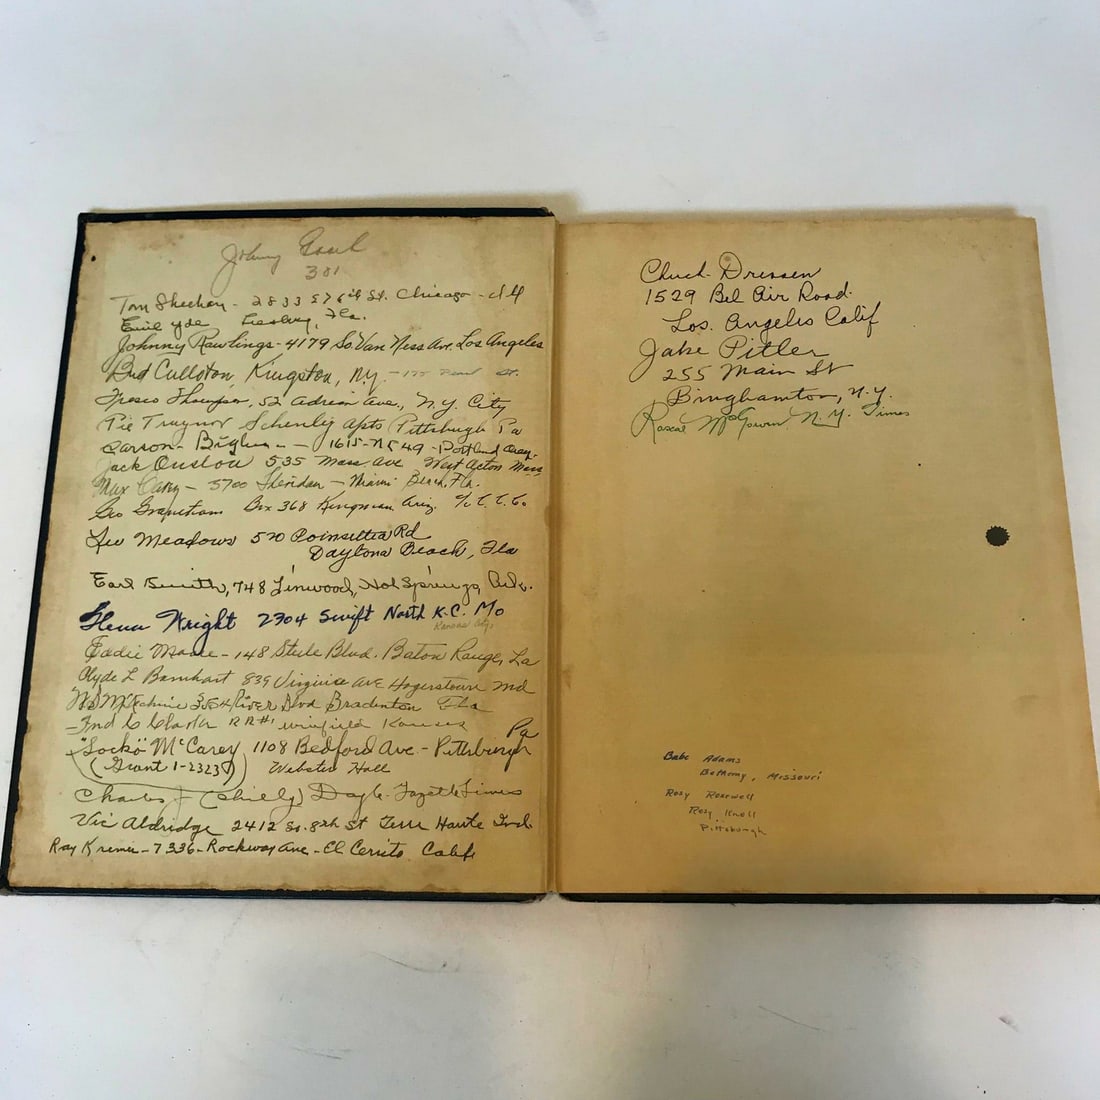 Johnny
301
Tom Sheehan - 2833 E 76th St. Chicago - Ill
Emil Yde Fla.
Johnny Rawlings - 4179 So. Van Ness Ave. Los Angeles
Bud Culloton, Kingston, N.Y. - St.
Fresco Thompson, 52 Adrian Ave., N.Y. City
Pie Traynor Schenley Apts Pittsburgh Pa
Carson Bigbee - 1615 - N E 49 - Portland Oreg.
Jack Onslow 535 Mass. Ave West Acton Mass.
Max Carey - 5700 Sheridan - Miami Beach, Fla.
Geo Grantham Box 368 Kingman Ariz.
Lee Meadows 520 Poinsettia Rd
Daytona Beach, Fla
Earl Smith, 748 Linwood, Hot Springs, Ark.
Glenn Wright 2304 Swift North K.C. Mo
Kansas City,
Eddie Moore - 148 Steele Blvd. Baton Rouge, La
Clyde L Barnhart 839 Virginia Ave Hagerstown Md
McKechnie River Blvd Bradenton Fla
Fred C Clarke RR#1 Winfield Kansas
"Socko" McCarey 1108 Bedford Ave - Pittsburgh Pa
(Grant 1-2323) Webster Hall
Charles J (Chilly) Doyle. Gazette Times
Vic Aldridge 2412 So. 8th St Terre Haute Ind.
Ray Kremer - 7336 - Rockway Ave - El Cerrito Calif
Chuck Dressen
1529 Bel Air Road.
Los. Angeles Calif
Jake Pitler
255 Main St
Binghamton, N.Y.
Roscoe McGowen N.Y. Times
Babe Adams
Bethany, Missouri
Rosy Roswell
Rosy Knoll
Pittsburgh